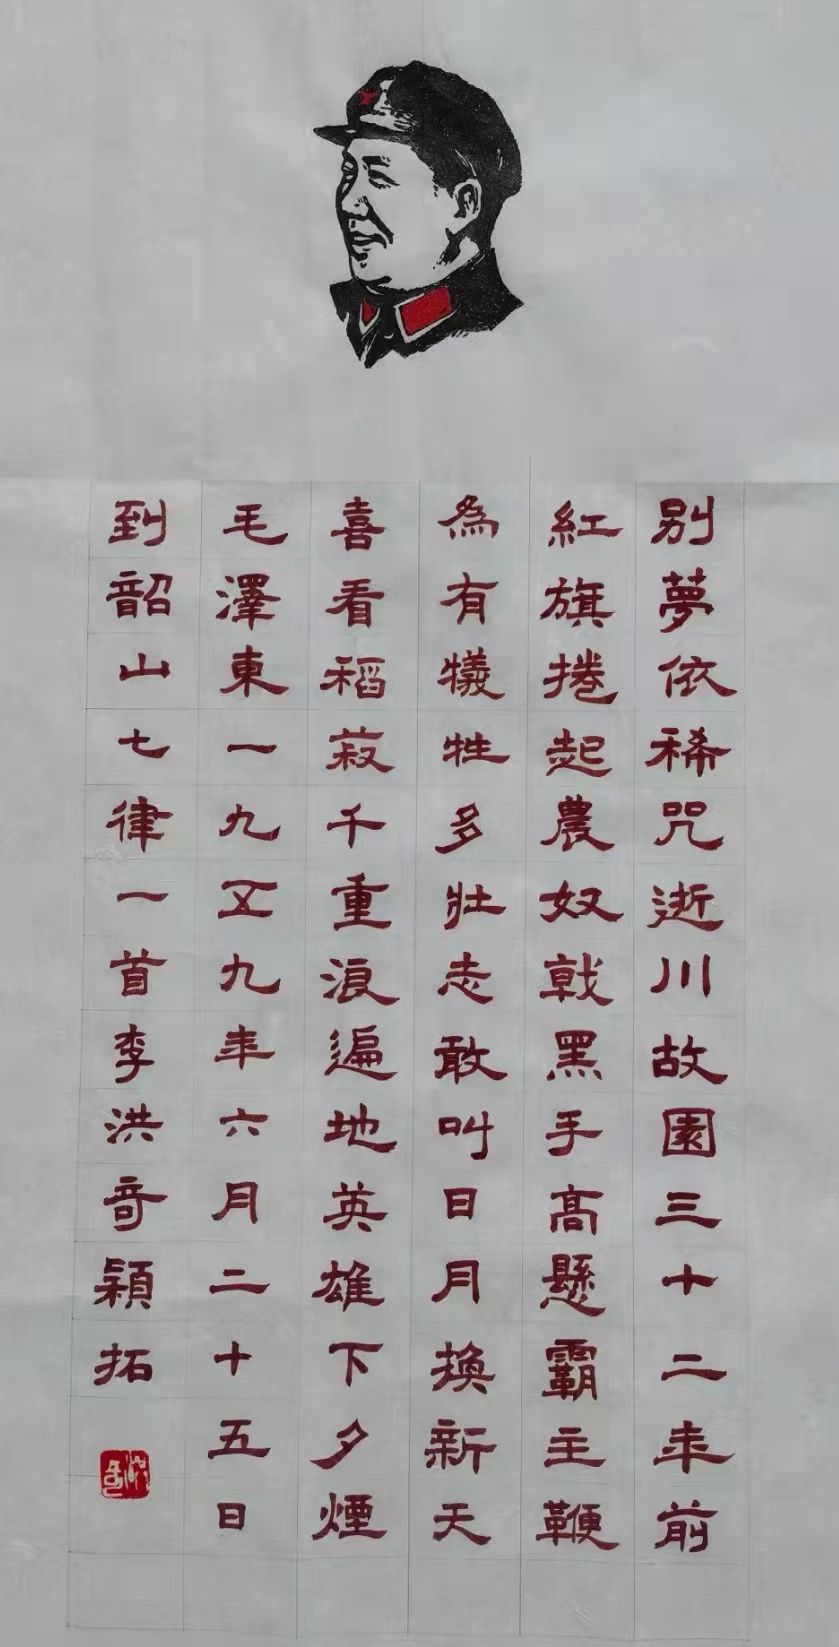 別夢依稀咒逝川故園三十二年前
紅旗捲起農奴戟黑手高懸霸主鞭
為有犧牲多壯志敢叫日月換新天
喜看稻菽千重浪遍地英雄下夕煙
毛澤東一九五九年六月二十五日
到韶山七律一首李洪奇穎拓